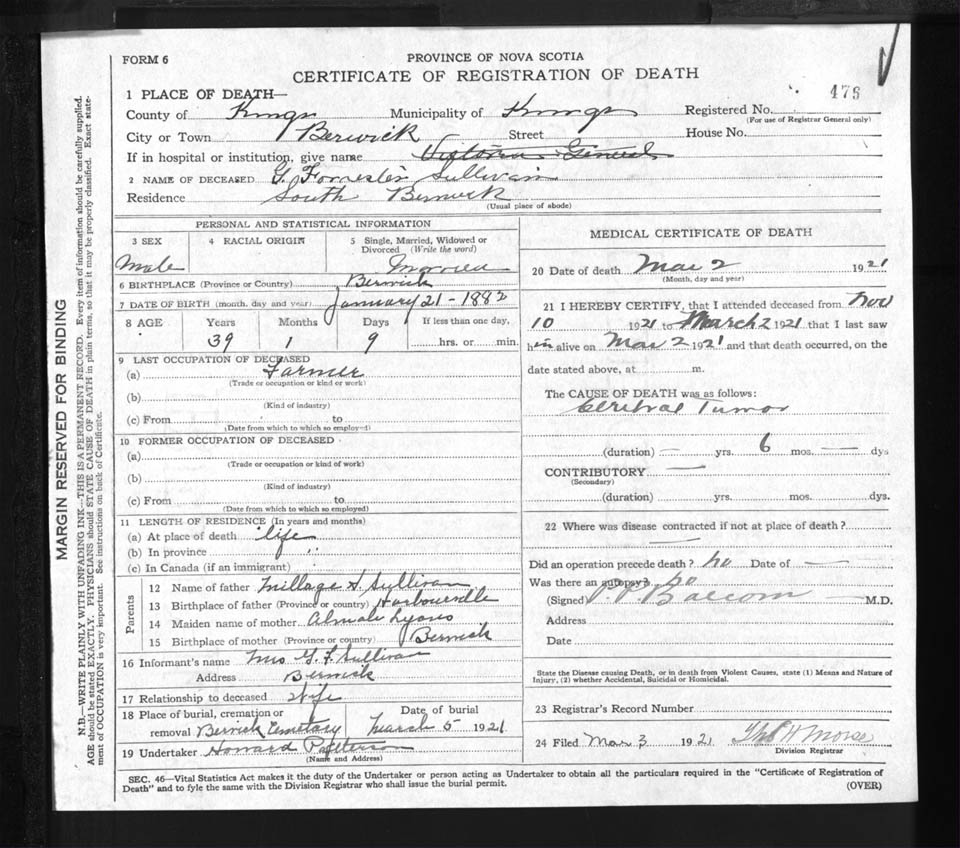 FORM 6
PROVINCE OF NOVA SCOTIA
CERTIFICATE OF REGISTRATION OF DEATH
476
1 PLACE OF DEATH—
County of Kings Municipality of Kings Registered No.
(For use of Registrar General only)
City or Town Berwick Street House No.
If in hospital or institution, give name Victoria General
2 NAME OF DECEASED G. Forrester Sullivan
Residence South Berwick
(Usual place of abode)
PERSONAL AND STATISTICAL INFORMATION
3 SEX 4 RACIAL ORIGIN 5 Single, Married, Widowed or Divorced (Write the word)
Male Married
6 BIRTHPLACE (Province or Country) Berwick
7 DATE OF BIRTH (month, day and year) January 21 - 1882
8 AGE Years Months Days If less than one day,
39 1 9 hrs. or min.
9 LAST OCCUPATION OF DECEASED
(a) Farmer
(Trade or occupation or kind of work)
(b)
(Kind of industry)
(c) From to
(Date from which to which so employed)
10 FORMER OCCUPATION OF DECEASED
(a)
(Trade or occupation or kind of work)
(b)
(Kind of industry)
(c) From to
(Date from which to which so employed)
11 LENGTH OF RESIDENCE (In years and months)
(a) At place of death life
(b) In province "
(c) In Canada (if an immigrant)
Parents
12 Name of father Millage S. Sullivan
13 Birthplace of father (Province or country) Harbourville
14 Maiden name of mother Lyons
15 Birthplace of mother (Province or country) Berwick
16 Informant's name Mrs G. F. Sullivan
Address Berwick
17 Relationship to deceased Wife
18 Place of burial, cremation or removal Berwick Cemetary
Date of burial March 5 1921
19 Undertaker Howard Patterson
(Name and Address)
MEDICAL CERTIFICATE OF DEATH
20 Date of death Mar 2 1921
(Month, day and year)
21 I HEREBY CERTIFY, that I attended deceased from Nov
10 1921 to March 2 1921 that I last saw
him alive on Mar 2 1921 and that death occurred, on the
date stated above, at m.
The CAUSE OF DEATH was as follows:
Cerebral Tumor
(duration) — yrs. 6 mos. — dys
CONTRIBUTORY —
(Secondary)
(duration) yrs. mos. dys.
22 Where was disease contracted if not at place of death?
—
Did an operation precede death? no Date of —
Was there an autopsy? no
(Signed) P. P. Balcom M.D.
Address
Date
State the Disease causing Death, or in death from Violent Causes, state (1) Means and Nature of
Injury, (2) whether Accidental, Suicidal or Homicidal.
23 Registrar's Record Number
24 Filed Mar 3 1921 Thos H Morse
Division Registrar
SEC. 46—Vital Statistics Act makes it the duty of the Undertaker or person acting as Undertaker to obtain all the particulars required in the "Certificate of Registration of
Death" and to fyle the same with the Division Registrar who shall issue the burial permit.
(OVER)
MARGIN RESERVED FOR BINDING
N.B.—WRITE PLAINLY WITH UNFADING INK—THIS IS A PERMANENT RECORD. Every item of information should be carefully supplied.
AGE should be stated EXACTLY. PHYSICIANS should STATE CAUSE OF DEATH in plain terms, so that it may be properly classified. Exact state-
ment of OCCUPATION is very important. See instructions on back of Certificate.